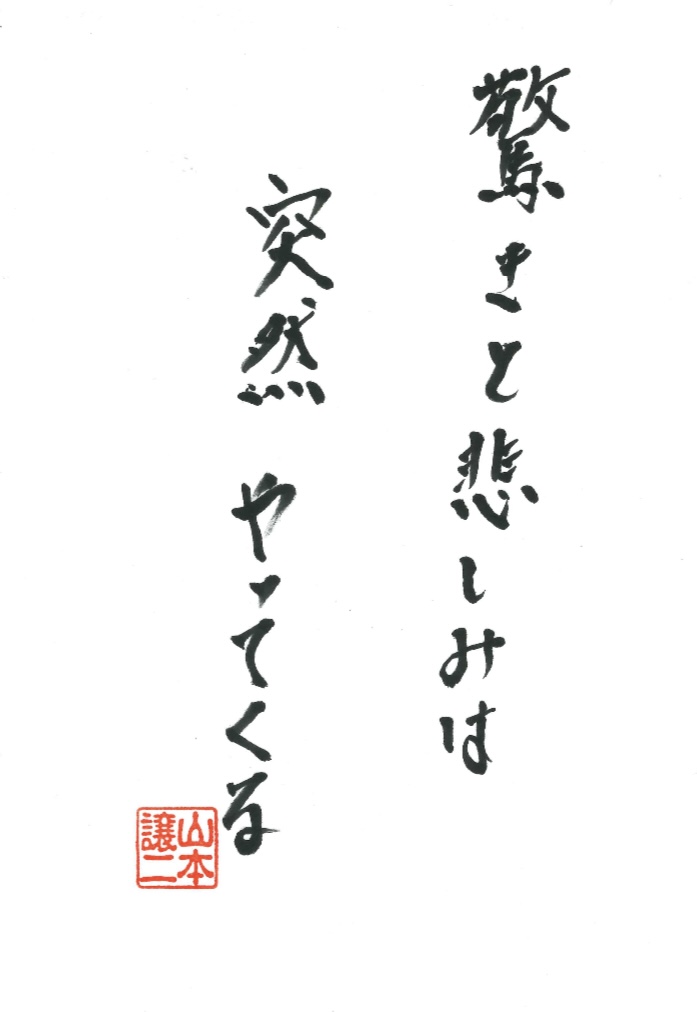 驚きと悲しみは
突然 やってくる
山本
譲二